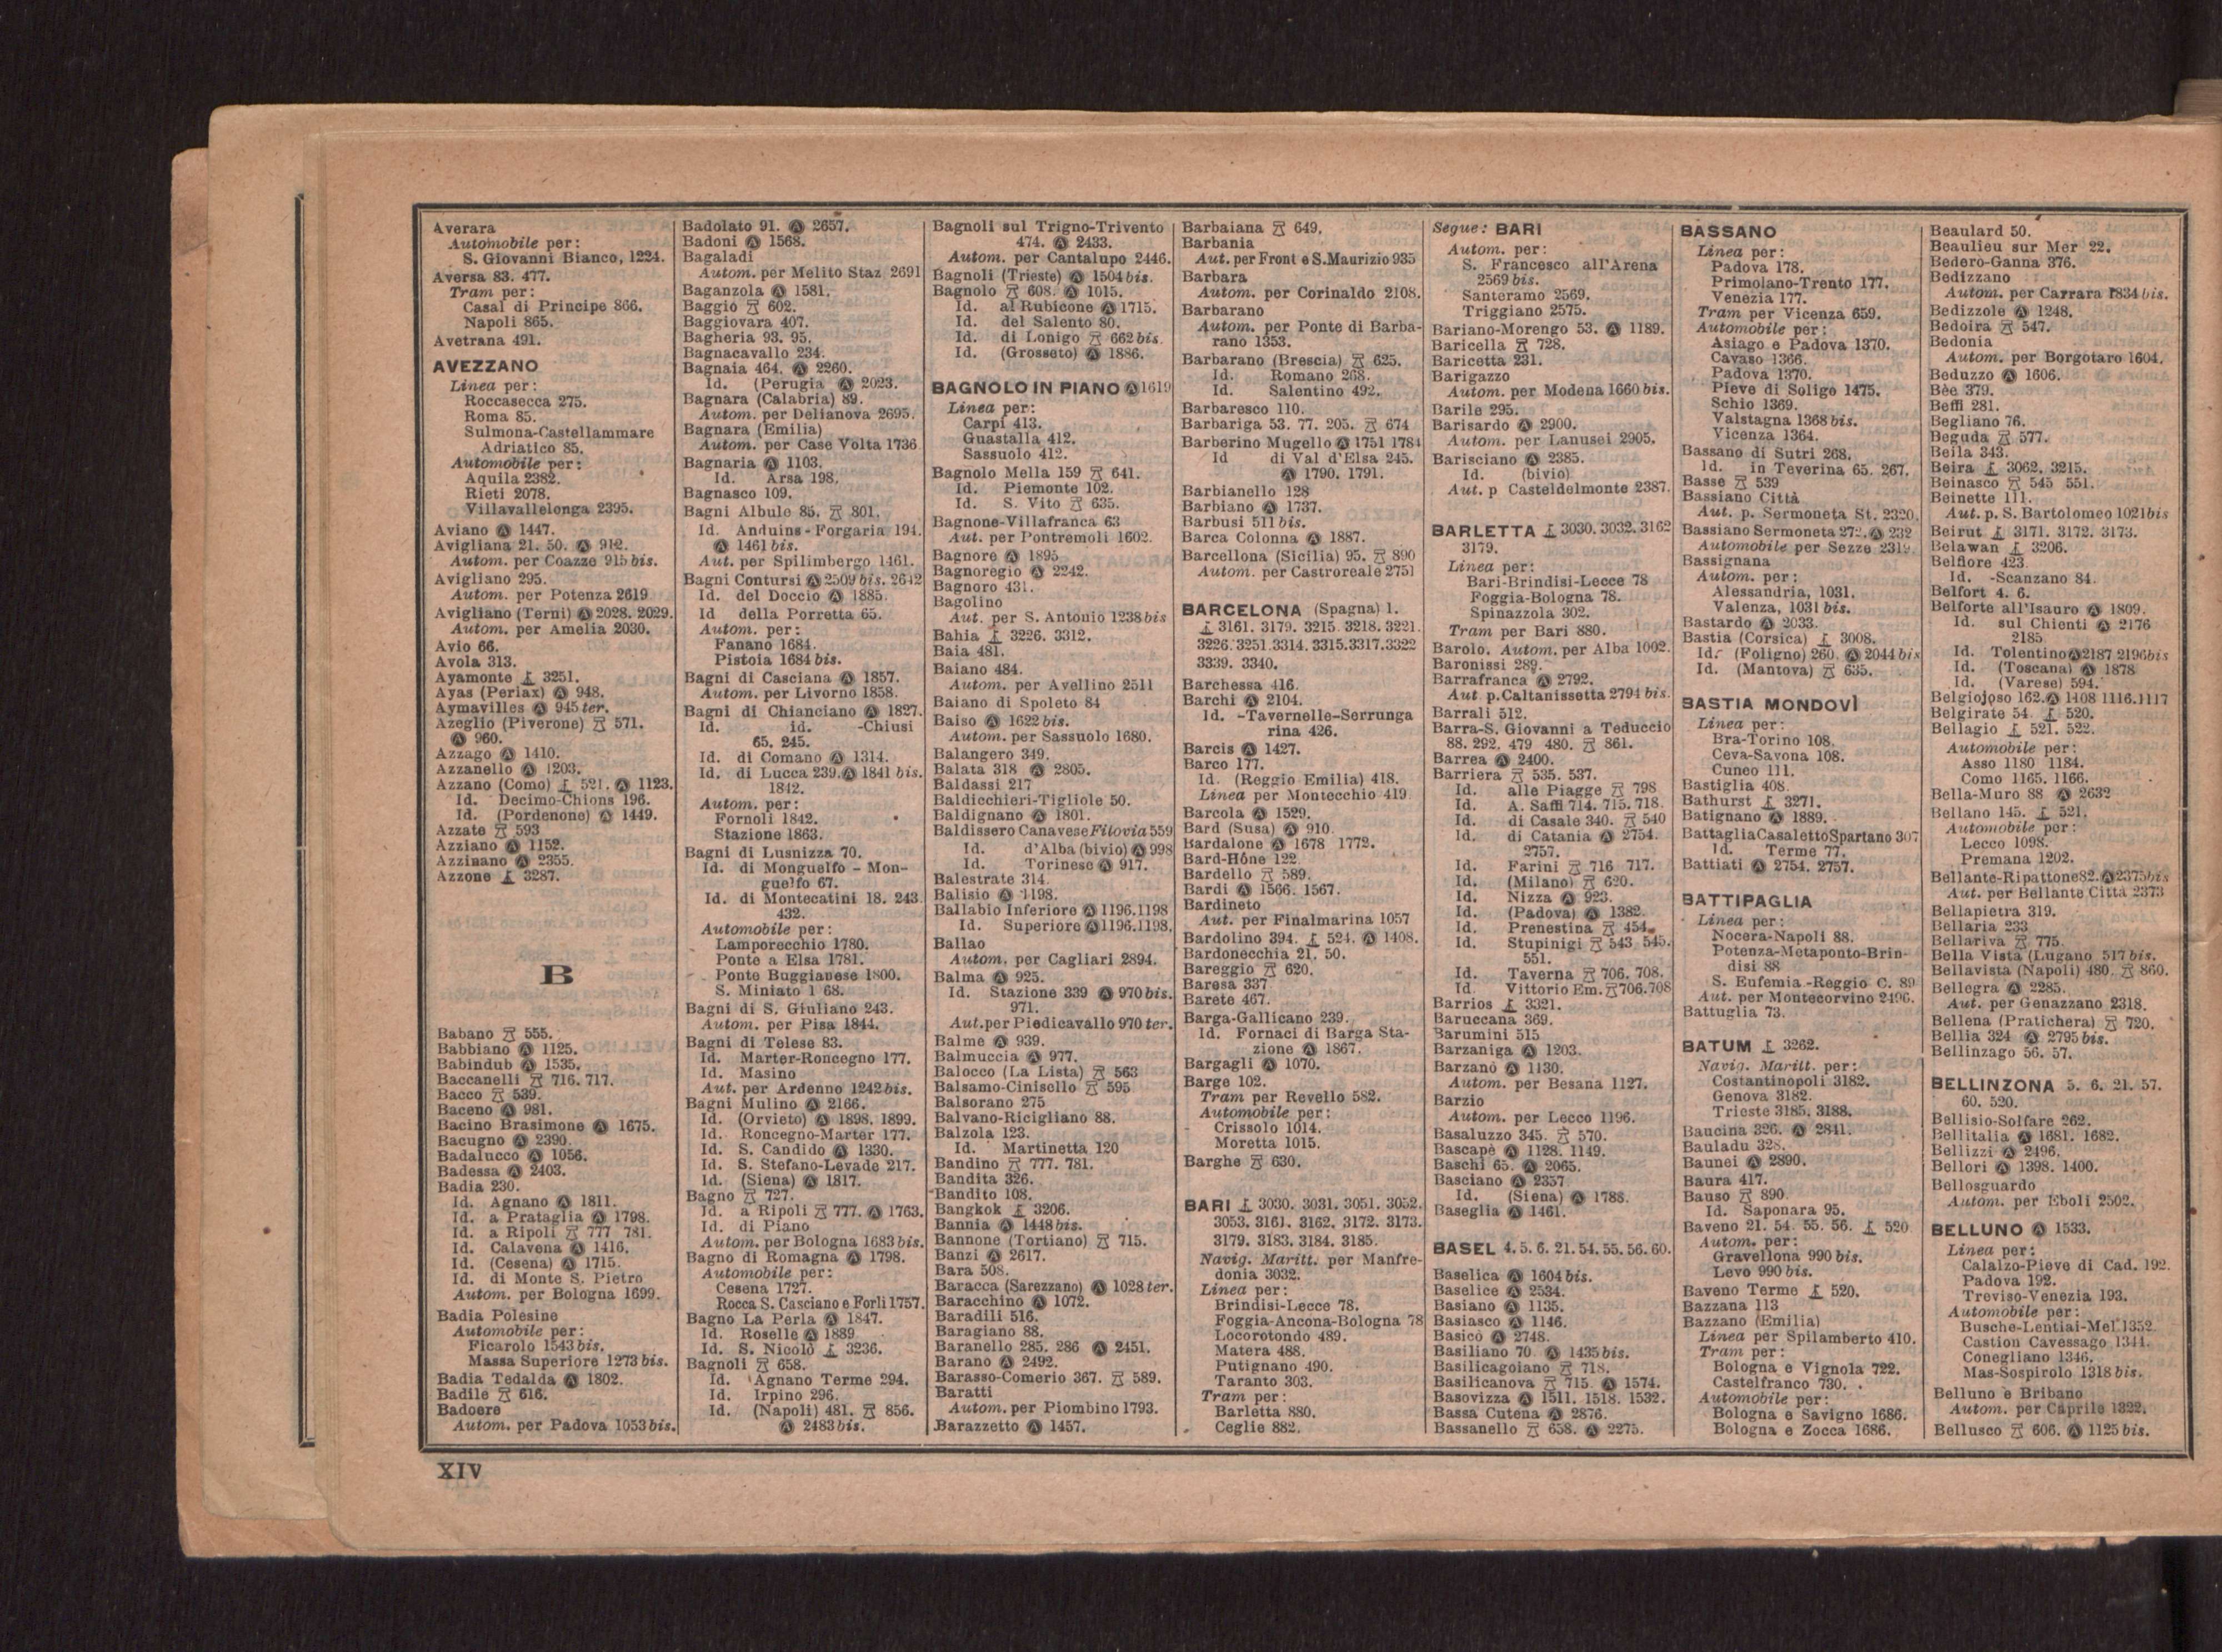 Averara
Automobile per:
S. Giovanni Bianco, 1224.
Aversa 83. 477.
Tram per:
Casal di Principe 866.
Napoli 865.
Avetrana 491.
AVEZZANO
Linea per:
Roccasecca 275.
Roma 85.
Sulmona-Castellammare
Adriatico 85.
Automobile per:
Aquila 2382.
Rieti 2078.
Villavallelonga 2395.
Aviano Ⓐ 1447.
Avigliana 21. 50. Ⓐ 912.
Autom. per Coazze 915 bis.
Avigliano 295.
Autom. per Potenza 2619
Avigliano (Terni) Ⓐ 2028. 2029.
Autom. per Amelia 2030.
Avio 66.
Avola 313.
Ayamonte 3251.
Ayas (Periax) Ⓐ 948.
Aymavilles Ⓐ 945 ter.
Azeglio (Piverone) 571.
Ⓐ 960.
Azzago Ⓐ 1410.
Azzanello Ⓐ 1203.
Azzano (Como) 521. Ⓐ 1123.
Id. Decimo-Chions 196.
Id. (Pordenone) Ⓐ 1449.
Azzate 593
Azziano Ⓐ 1152.
Azzinano Ⓐ 2355.
Azzone 3287.
B
Babano 555.
Babbiano Ⓐ 1125.
Babindub Ⓐ 1535.
Baccanelli 716. 717.
Bacco 539.
Baceno Ⓐ 981.
Bacino Brasimone Ⓐ 1675.
Bacugno Ⓐ 2390.
Badalucco Ⓐ 1056.
Badessa Ⓐ 2403.
Badia 230.
Id. Agnano Ⓐ 1811.
Id. a Prataglia Ⓐ 1798.
Id. a Ripoli 777 781.
Id. Calavena Ⓐ 1416.
Id. (Cesena) Ⓐ 1715.
Id. di Monte S. Pietro
Autom. per Bologna 1699.
Badia Polesine
Automobile per:
Ficarolo 1543 bis.
Massa Superiore 1273 bis.
Badia Tedalda Ⓐ 1802.
Badile 616.
Badoere
Autom. per Padova 1053 bis.
Badolato 91. Ⓐ 2657.
Badoni Ⓐ 1568.
Bagaladi
Autom. per Melito Staz 2691
Baganzola Ⓐ 1581.
Baggio 602.
Baggiovara 407.
Bagheria 93. 95.
Bagnacavallo 234.
Bagnaia 464. Ⓐ 2260.
Id. (Perugia Ⓐ 2023.
Bagnara (Calabria) 89.
Autom. per Delianova 2695.
Bagnara (Emilia)
Autom. per Case Volta 1736
Bagnaria Ⓐ 1103.
Id. Arsa 198.
Bagnasco 109.
Bagni Albule 85. 801.
Id. Anduins-Forgaria 194.
Ⓐ 1461 bis.
Aut. per Spilimbergo 1461.
Bagni Contursi Ⓐ 2509 bis. 2642
Id. del Doccio Ⓐ 1885.
Id della Porretta 65.
Autom. per:
Fanano 1684.
Pistoia 1684 bis.
Bagni di Casciana Ⓐ 1857.
Autom. per Livorno 1858.
Bagni di Chianciano Ⓐ 1827.
Id. id. -Chiusi
65. 245.
Id. di Comano Ⓐ 1314.
Id. di Lucca 239. Ⓐ 1841 bis.
1842.
Autom. per:
Fornoli 1842.
Stazione 1863.
Bagni di Lusnizza 70.
Id. di Monguelfo - Mon-
guelfo 67.
Id. di Montecatini 18. 243
432.
Automobile per:
Lamporecchio 1780.
Ponte a Elsa 1781.
Ponte Buggianese 1800.
S. Miniato 1 68.
Bagni di S. Giuliano 243.
Autom. per Pisa 1844.
Bagni di Telese 83.
Id. Marter-Roncegno 177.
Id. Masino
Aut. per Ardenno 1242 bis.
Bagni Mulino Ⓐ 2166.
Id. (Orvieto) Ⓐ 1898. 1899.
Id. Roncegno-Marter 177.
Id. S. Candido Ⓐ 1330.
Id. S. Stefano-Levade 217.
Id. (Siena) Ⓐ 1817.
Bagno 727.
Id. a Ripoli 777. Ⓐ 1763.
Id. di Piano
Autom. per Bologna 1683 bis.
Bagno di Romagna Ⓐ 1798.
Automobile per:
Cesena 1727.
Rocca S. Casciano e Forlì 1757.
Bagno La Perla Ⓐ 1847.
Id. Roselle Ⓐ 1889
Id. S. Nicolò 3236.
Bagnoli 658.
Id. Agnano Terme 294.
Id. Irpino 296.
Id. (Napoli) 481. 856.
Ⓐ 2483 bis.
Bagnoli sul Trigno-Trivento
474. Ⓐ 2433.
Autom. per Cantalupo 2446.
Bagnoli (Trieste) Ⓐ 1504 bis.
Bagnolo 608. Ⓐ 1015.
Id. al Rubicone Ⓐ 1715.
Id. del Salento 80.
Id. di Lonigo 662 bis.
Id. (Grosseto) Ⓐ 1886.
BAGNOLO IN PIANO Ⓐ 1619
Linea per:
Carpi 413.
Guastalla 412.
Sassuolo 412.
Bagnolo Mella 159 641.
Id. Piemonte 102.
Id. S. Vito 635.
Bagnone-Villafranca 63
Aut. per Pontremoli 1602.
Bagnore Ⓐ 1895
Bagnoregio Ⓐ 2242.
Bagnoro 431.
Bagolino
Aut. per S. Antonio 1238 bis
Bahia 3226. 3312.
Baia 481.
Baiano 484.
Autom. per Avellino 2511
Baiano di Spoleto 84
Baiso Ⓐ 1622 bis.
Autom. per Sassuolo 1680.
Balangero 349.
Balata 318 Ⓐ 2805.
Baldassi 217
Baldicchieri-Tigliole 50.
Baldignano Ⓐ 1801.
Baldissero Canavese Filovia 559
Id. d'Alba (bivio) Ⓐ 998
Id. Torinese Ⓐ 917.
Balestrate 314.
Balisio Ⓐ 1198.
Ballabio Inferiore Ⓐ 1196.1198
Id. Superiore Ⓐ 1196.1198.
Ballao
Autom. per Cagliari 2894.
Balma Ⓐ 925.
Id. Stazione 339 Ⓐ 970 bis.
971.
Aut. per Piedicavallo 970 ter.
Balme Ⓐ 939.
Balmuccia Ⓐ 977.
Balocco (La Lista) 563
Balsamo-Cinisello 595
Balsorano 275
Balvano-Ricigliano 88.
Balzola 123.
Id. Martinetta 120
Bandino 777. 781.
Bandita 326.
Bandito 108.
Bangkok 3206.
Bannia Ⓐ 1448 bis.
Bannone (Tortiano) 715.
Banzi Ⓐ 2617.
Bara 508.
Baracca (Sarezzano) Ⓐ 1028 ter.
Baracchino Ⓐ 1072.
Baradili 516.
Baragiano 88.
Baranello 285. 286 Ⓐ 2451.
Barano Ⓐ 2492.
Barasso-Comerio 367. 589.
Baratti
Autom. per Piombino 1793.
Barazzetto Ⓐ 1457.
Barbaiana 649.
Barbania
Aut. per Front e S. Maurizio 935
Barbara
Autom. per Corinaldo 2108.
Barbarano
Autom. per Ponte di Barba-
rano 1353.
Barbarano (Brescia) 625.
Id. Romano 268.
Id. Salentino 492.
Barbaresco 110.
Barbariga 53. 77. 205. 674
Barberino Mugello Ⓐ 1751 1784
Id di Val d'Elsa 245.
Ⓐ 1790. 1791.
Barbianello 128
Barbiano Ⓐ 1737.
Barbusi 511 bis.
Barca Colonna Ⓐ 1887.
Barcellona (Sicilia) 95. 890
Autom. per Castroreale 2751
BARCELONA (Spagna) 1.
3161. 3179. 3215. 3218. 3221.
3226. 3251. 3314. 3315. 3317. 3322
3339. 3340.
Barchessa 416.
Barchi Ⓐ 2104.
Id. -Tavernelle-Serrunga
rina 426.
Barcis Ⓐ 1427.
Barco 177.
Id. (Reggio Emilia) 418.
Linea per Montecchio 419
Barcola Ⓐ 1529.
Bard (Susa) Ⓐ 910.
Bardalone Ⓐ 1678 1772.
Bard-Hône 122
Bardello 589.
Bardi Ⓐ 1566. 1567.
Bardineto
Aut. per Finalmarina 1057
Bardolino 394. 524. Ⓐ 1408.
Bardonecchia 21. 50.
Bareggio 620.
Baresa 337
Barete 467.
Barga-Gallicano 239.
Id. Fornaci di Barga Sta-
zione Ⓐ 1867.
Bargagli Ⓐ 1070.
Barge 102.
Tram per Revello 582.
Automobile per:
Crissolo 1014.
Moretta 1015.
Barghe 630.
BARI 3030. 3031. 3051. 3052.
3053. 3161. 3162. 3172. 3173.
3179. 3183. 3184. 3185.
Navig. Maritt. per Manfre-
donia 3032.
Linea per:
Brindisi-Lecce 78.
Foggia-Ancona-Bologna 78
Locorotondo 489.
Matera 488.
Putignano 490.
Taranto 303.
Tram per:
Barletta 880.
Ceglie 882.
Segue: BARI
Autom. per:
S. Francesco all'Arena
2569 bis.
Santeramo 2569.
Triggiano 2575.
Bariano-Morengo 53. Ⓐ 1189.
Baricella 728.
Baricetta 231.
Barigazzo
Autom. per Modena 1660 bis.
Barile 295.
Barisardo Ⓐ 2900.
Autom. per Lanusei 2905.
Barisciano Ⓐ 2385.
Id. (bivio)
Aut. p Casteldelmonte 2387.
BARLETTA 3030. 3032. 3162
3179.
Linea per:
Bari-Brindisi-Lecce 78
Foggia-Bologna 78.
Spinazzola 302.
Tram per Bari 880.
Barolo. Autom. per Alba 1002.
Baronissi 289.
Barrafranca Ⓐ 2792.
Aut. p. Caltanissetta 2794 bis.
Barrali 512.
Barra-S. Giovanni a Teduccio
88. 292. 479 480. 861.
Barrea Ⓐ 2400.
Barriera 535. 537.
Id. alle Piagge 798
Id. A. Saffi 714. 715. 718.
Id. di Casale 340. 540
Id. di Catania Ⓐ 2754.
2757.
Id. Farini 716 717.
Id. (Milano) 620.
Id. Nizza Ⓐ 923.
Id. (Padova) Ⓐ 1382.
Id. Prenestina 454.
Id. Stupinigi 543 545.
551.
Id. Taverna 706. 708.
Id. Vittorio Em. 706.708
Barrios 3321.
Baruccana 369.
Barumini 515
Barzaniga Ⓐ 1203.
Barzanò Ⓐ 1130.
Autom. per Besana 1127.
Barzio
Autom. per Lecco 1196.
Basaluzzo 345. 570.
Bascapè Ⓐ 1128. 1149.
Baschi 65. Ⓐ 2065.
Basciano Ⓐ 2357
Id. (Siena) Ⓐ 1788.
Baseglia Ⓐ 1461.
BASEL 4. 5. 6. 21. 54. 55. 56. 60.
Baselica Ⓐ 1604 bis.
Baselice Ⓐ 2534.
Basiano Ⓐ 1135.
Basiasco Ⓐ 1146.
Basicò Ⓐ 2748.
Basiliano 70. Ⓐ 1435 bis.
Basilicagoiano 718.
Basilicanova 715. Ⓐ 1574.
Basovizza Ⓐ 1511. 1518. 1532.
Bassa Cutena Ⓐ 2876.
Bassanello 658. Ⓐ 2275.
BASSANO
Linea per:
Padova 178.
Primolano-Trento 177.
Venezia 177.
Tram per Vicenza 659.
Automobile per:
Asiago e Padova 1370.
Cavaso 1366.
Padova 1370.
Pieve di Soligo 1475.
Schio 1369.
Valstagna 1368 bis.
Vicenza 1364.
Bassano di Sutri 268.
Id. in Teverina 65. 267.
Basse 539
Bassiano Città
Aut. p. Sermoneta St. 2320.
Bassiano Sermoneta 272. Ⓐ 232
Automobile per Sezze 2319.
Bassignana
Autom. per:
Alessandria, 1031.
Valenza, 1031 bis.
Bastardo Ⓐ 2033.
Bastia (Corsica) 3008.
Id. (Foligno) 260. Ⓐ 2044 bis
Id. (Mantova) 635.
BASTIA MONDOVÌ
Linea per:
Bra-Torino 108.
Ceva-Savona 108.
Cuneo 111.
Bastiglia 408.
Bathurst 3271.
Batignano Ⓐ 1889.
Battaglia Casaletto Spartano 307
Id. Terme 77.
Battiati Ⓐ 2754. 2757.
BATTIPAGLIA
Linea per:
Nocera-Napoli 88.
Potenza-Metaponto-Brin-
disi 88
S. Eufemia-Reggio C. 89
Aut. per Montecorvino 2496.
Battuglia 73.
BATUM 3262.
Navig. Maritt. per:
Costantinopoli 3182.
Genova 3182.
Trieste 3185. 3188.
Baucina 326. Ⓐ 2841.
Bauladu 328.
Baunei Ⓐ 2890.
Baura 417.
Bauso 890
Id. Saponara 95.
Baveno 21. 54. 55. 56. 520
Autom. per:
Gravellona 990 bis.
Levo 990 bis.
Baveno Terme 520.
Bazzana 113
Bazzano (Emilia)
Linea per Spilamberto 410.
Tram per:
Bologna e Vignola 722.
Castelfranco 730.
Automobile per:
Bologna e Savigno 1686.
Bologna e Zocca 1686.
Beaulard 50.
Beaulieu sur Mer 22.
Bedero-Ganna 376.
Bedizzano
Autom. per Carrara 1834 bis.
Bedizzole Ⓐ 1248.
Bedoira 547.
Bedonia
Autom. per Borgotaro 1604.
Beduzzo Ⓐ 1606.
Bèe 379.
Beffi 281.
Begliano 76.
Beguda 577.
Beila 343.
Beira 3062. 3215.
Beinasco 545 551.
Beinette 111.
Aut. p. S. Bartolomeo 1021 bis
Beirut 3171. 3172. 3173.
Belawan 3206.
Belfiore 423
Id. -Scanzano 84.
Belfort 4. 6.
Belforte all'Isauro Ⓐ 1809.
Id. sul Chienti Ⓐ 2176
2185
Id. Tolentino Ⓐ 2187 2196 bis
Id. (Toscana) Ⓐ 1878
Id. (Varese) 594.
Belgiojoso 162. Ⓐ 1408 1116.1117
Belgirate 54. 520.
Bellagio 521. 522.
Automobile per:
Asso 1180 1184.
Como 1165. 1166.
Bella-Muro 88 Ⓐ 2632
Bellano 145. 521.
Automobile per:
Lecco 1098.
Premana 1202.
Bellante-Ripattone 82. Ⓐ 2375 bis
Aut. per Bellante Città 2373
Bellapietra 319.
Bellaria 233
Bellariva 775.
Bella Vista (Lugano 517 bis.
Bellavista (Napoli) 480. 860.
Bellegra Ⓐ 2285.
Aut. per Genazzano 2318.
Bellena (Pratichera) 720.
Bellia 324 Ⓐ 2795 bis.
Bellinzago 56. 57.
BELLINZONA 5. 6. 21. 57.
60. 520.
Bellisio-Solfare 262.
Bellitalia Ⓐ 1681. 1682.
Bellizzi Ⓐ 2496.
Bellori Ⓐ 1398. 1400.
Bellosguardo
Autom. per Eboli 2502.
BELLUNO Ⓐ 1533.
Linea per:
Calalzo-Pieve di Cad. 192.
Padova 192.
Treviso-Venezia 193.
Automobile per:
Busche-Lentiai-Mel 1352
Castion Cavessago 1344.
Conegliano 1346.
Mas-Sospirolo 1318 bis.
Belluno e Bribano
Autom. per Caprile 1322.
Bellusco 606. Ⓐ 1125 bis.
XIV